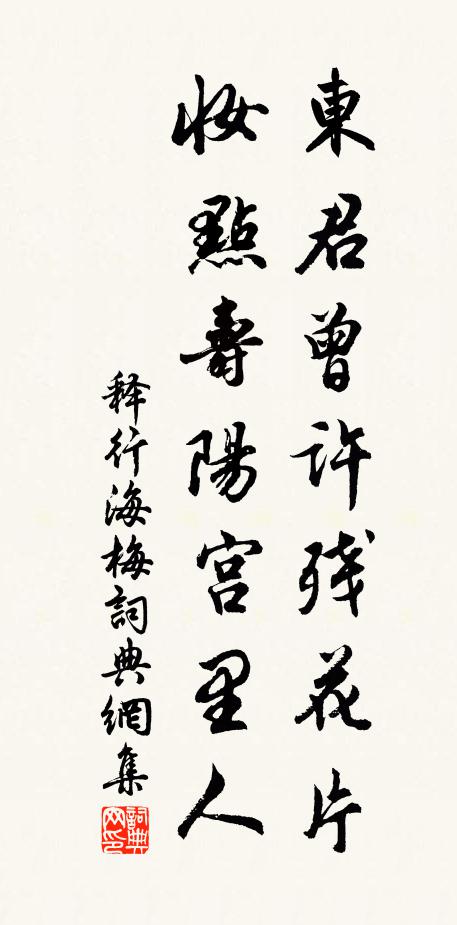 東君曾許残花片
妝點壽陽宫里人
释行海梅詞典網集
詞典网印